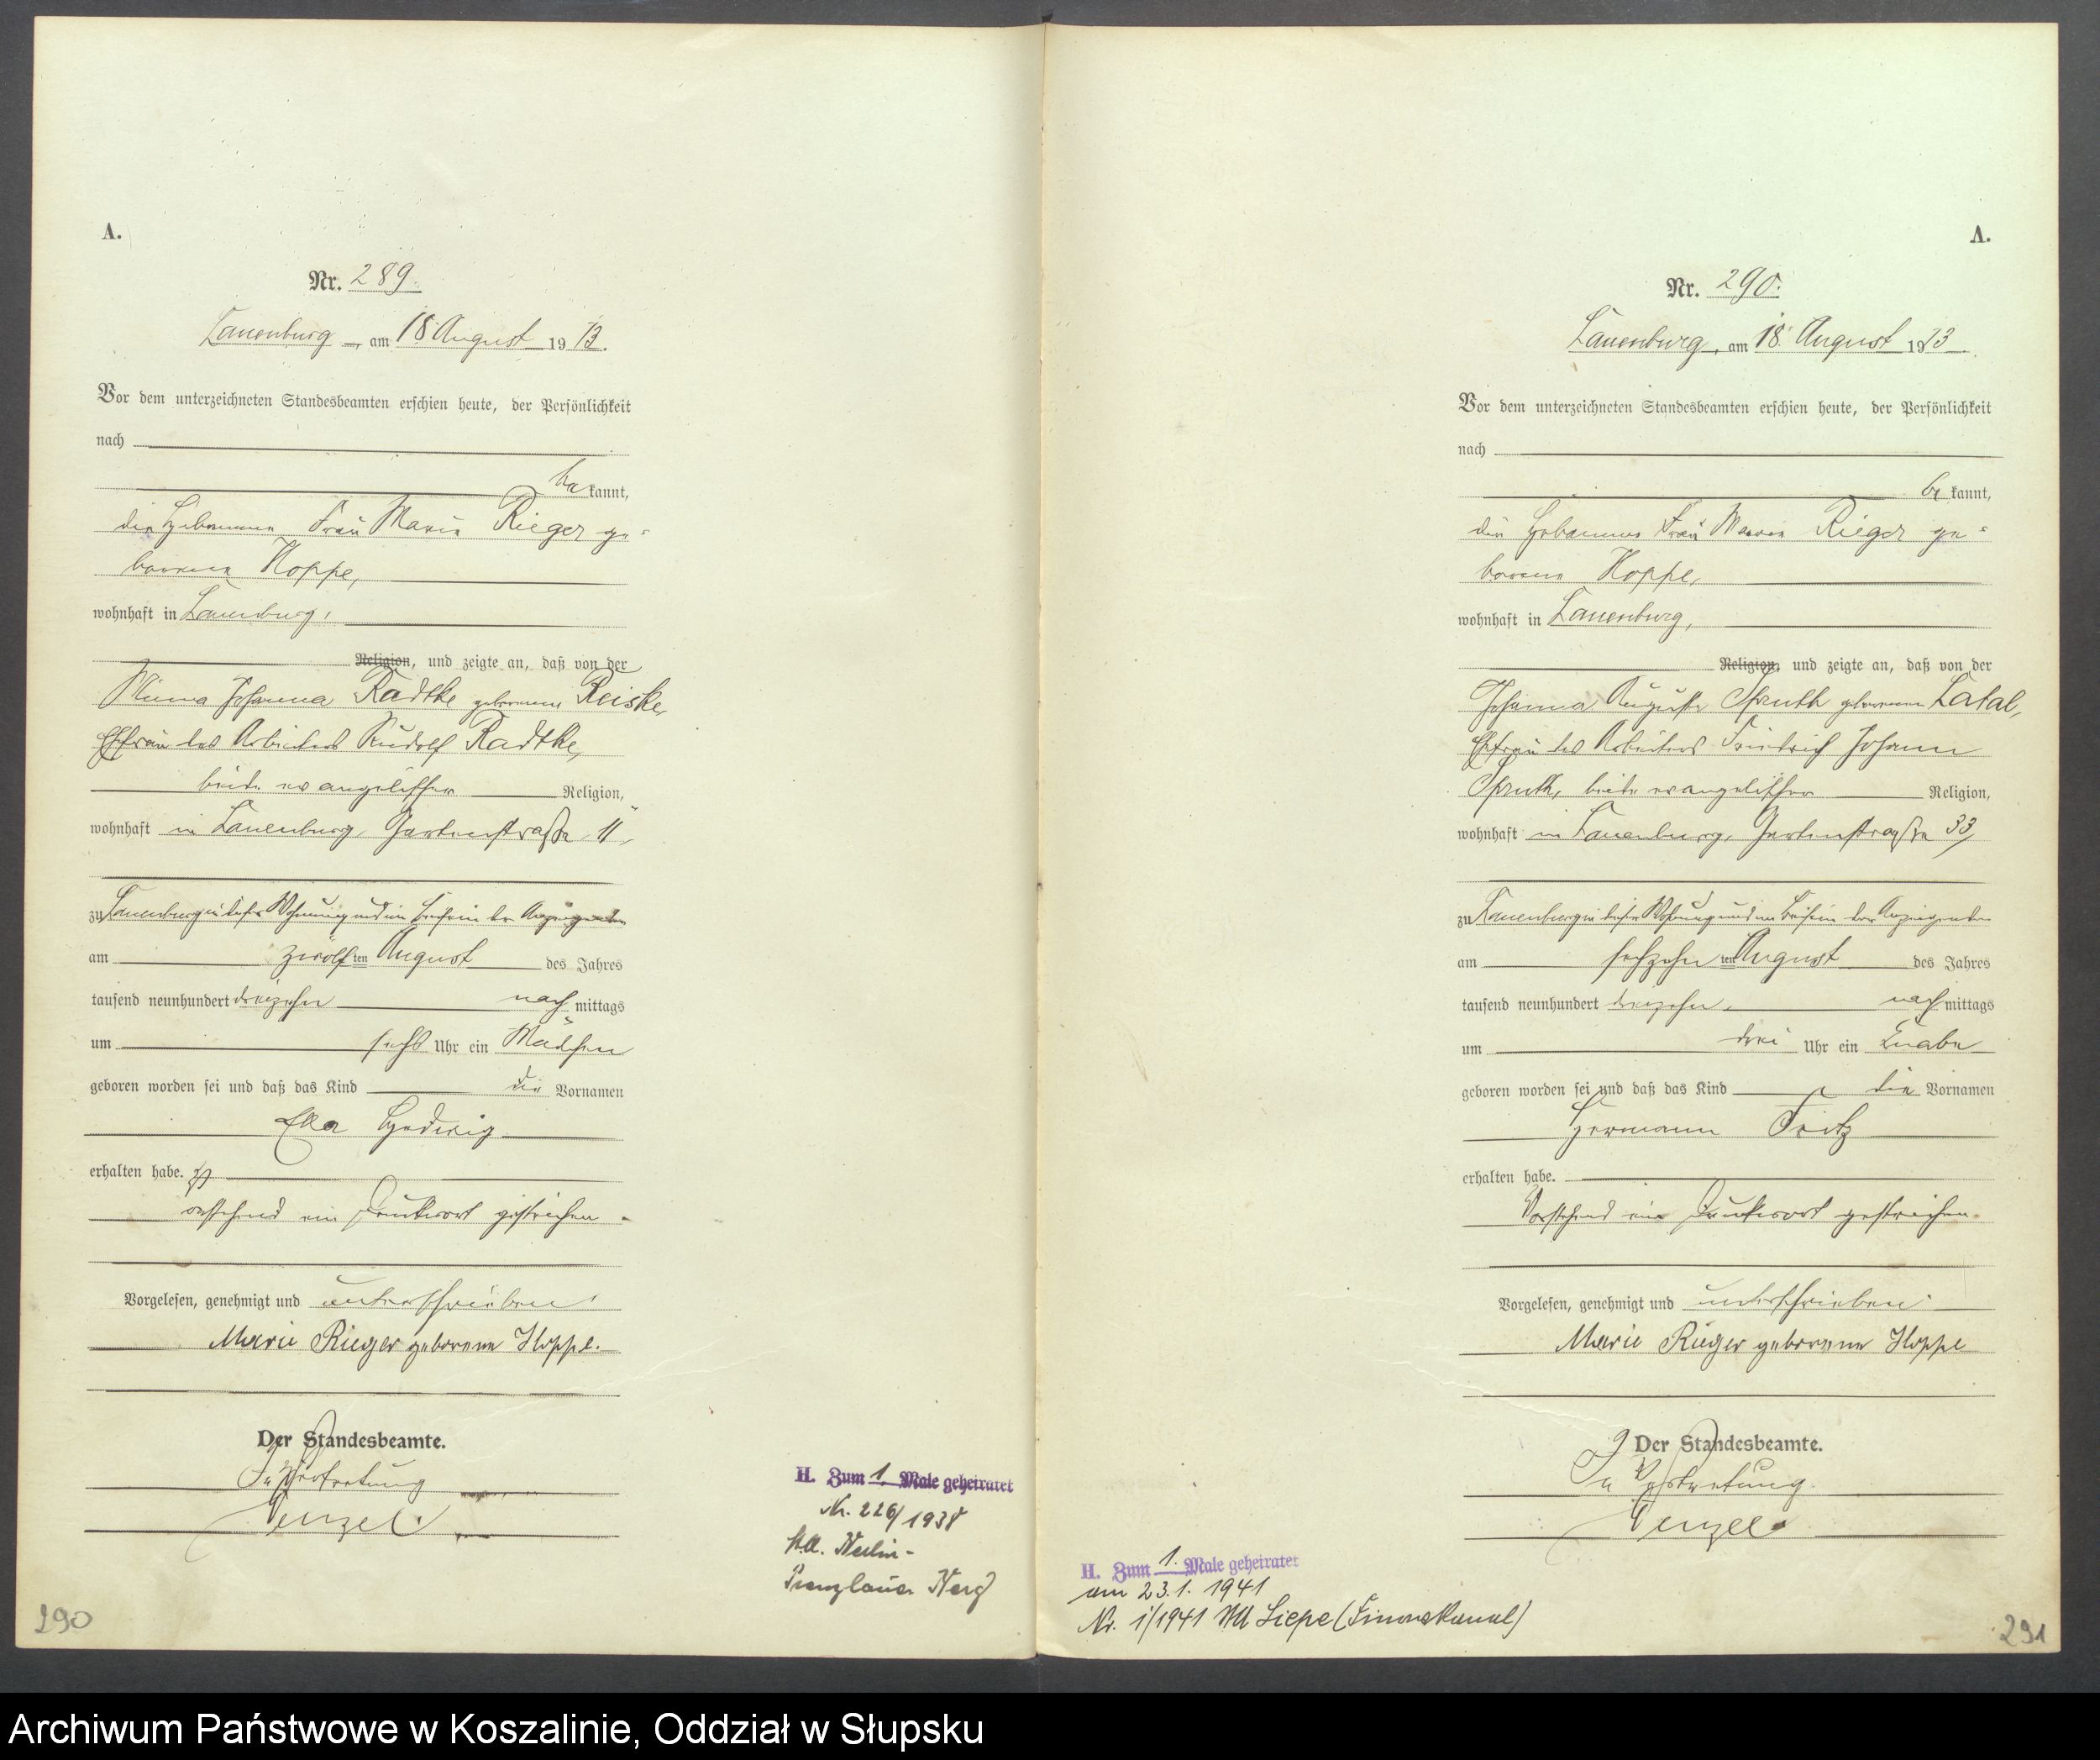 A.
Nr. 289.
Lauenburg, am 18 August 1913.
Vor dem unterzeichneten Standesbeamten erschien heute, der Persönlichkeit
nach
be kannt,
die Hebamme Frau Marie Rieger ge-
borene Hoppe,
wohnhaft in Lauenburg,
Religion, und zeigte an, daß von der
Minna Johanna Radtke geborenen Reiske,
Ehefrau des Arbeiters Rudolf Radtke,
beide evangelischer Religion,
wohnhaft in Lauenburg, Gartenstraße 11,
zu Lauenburg in dieser Wohnung und im Beisein der Anzeigenden
am zwölf ten August des Jahres
tausend neunhundert dreizehn nach mittags
um sechs Uhr ein Mädchen
geboren worden sei und daß das Kind die Vornamen
Ella Hedwig
erhalten habe.
Vorstehend ein Druckwort gestrichen.
Vorgelesen, genehmigt und unterschrieben
Marie Rieger geborene Hoppe.
Der Standesbeamte.
In Vertretung
Wenzel.
H. Zum 1. Male geheiratet
Nr. 226/1938
StA. Berlin-
Prenzlauer Berg
290
A.
Nr. 290.
Lauenburg, am 18. August 1913
Vor dem unterzeichneten Standesbeamten erschien heute, der Persönlichkeit
nach
be kannt,
die Hebamme Frau Marie Rieger ge-
borene Hoppe,
wohnhaft in Lauenburg,
Religion, und zeigte an, daß von der
Johanna Auguste Spruth geborenen Latal,
Ehefrau des Arbeiters Friedrich Johann
Spruth, beide evangelischer Religion,
wohnhaft in Lauenburg, Gartenstraße 33,
zu Lauenburg in dieser Wohnung und im Beisein der Anzeigenden
am sechzehn ten August des Jahres
tausend neunhundert dreizehn nach mittags
um drei Uhr ein Knabe
geboren worden sei und daß das Kind die Vornamen
Hermann Fritz
erhalten habe.
Vorstehend ein Druckwort gestrichen.
Vorgelesen, genehmigt und unterschrieben
Marie Rieger geborene Hoppe
Der Standesbeamte.
In Vertretung.
Wenzel.
H. Zum 1. Male geheiratet
am 23.1.1941
Nr. 1/1941 StA Liepe (Finowkanal)
291
Archiwum Państwowe w Koszalinie, Oddział w Słupsku